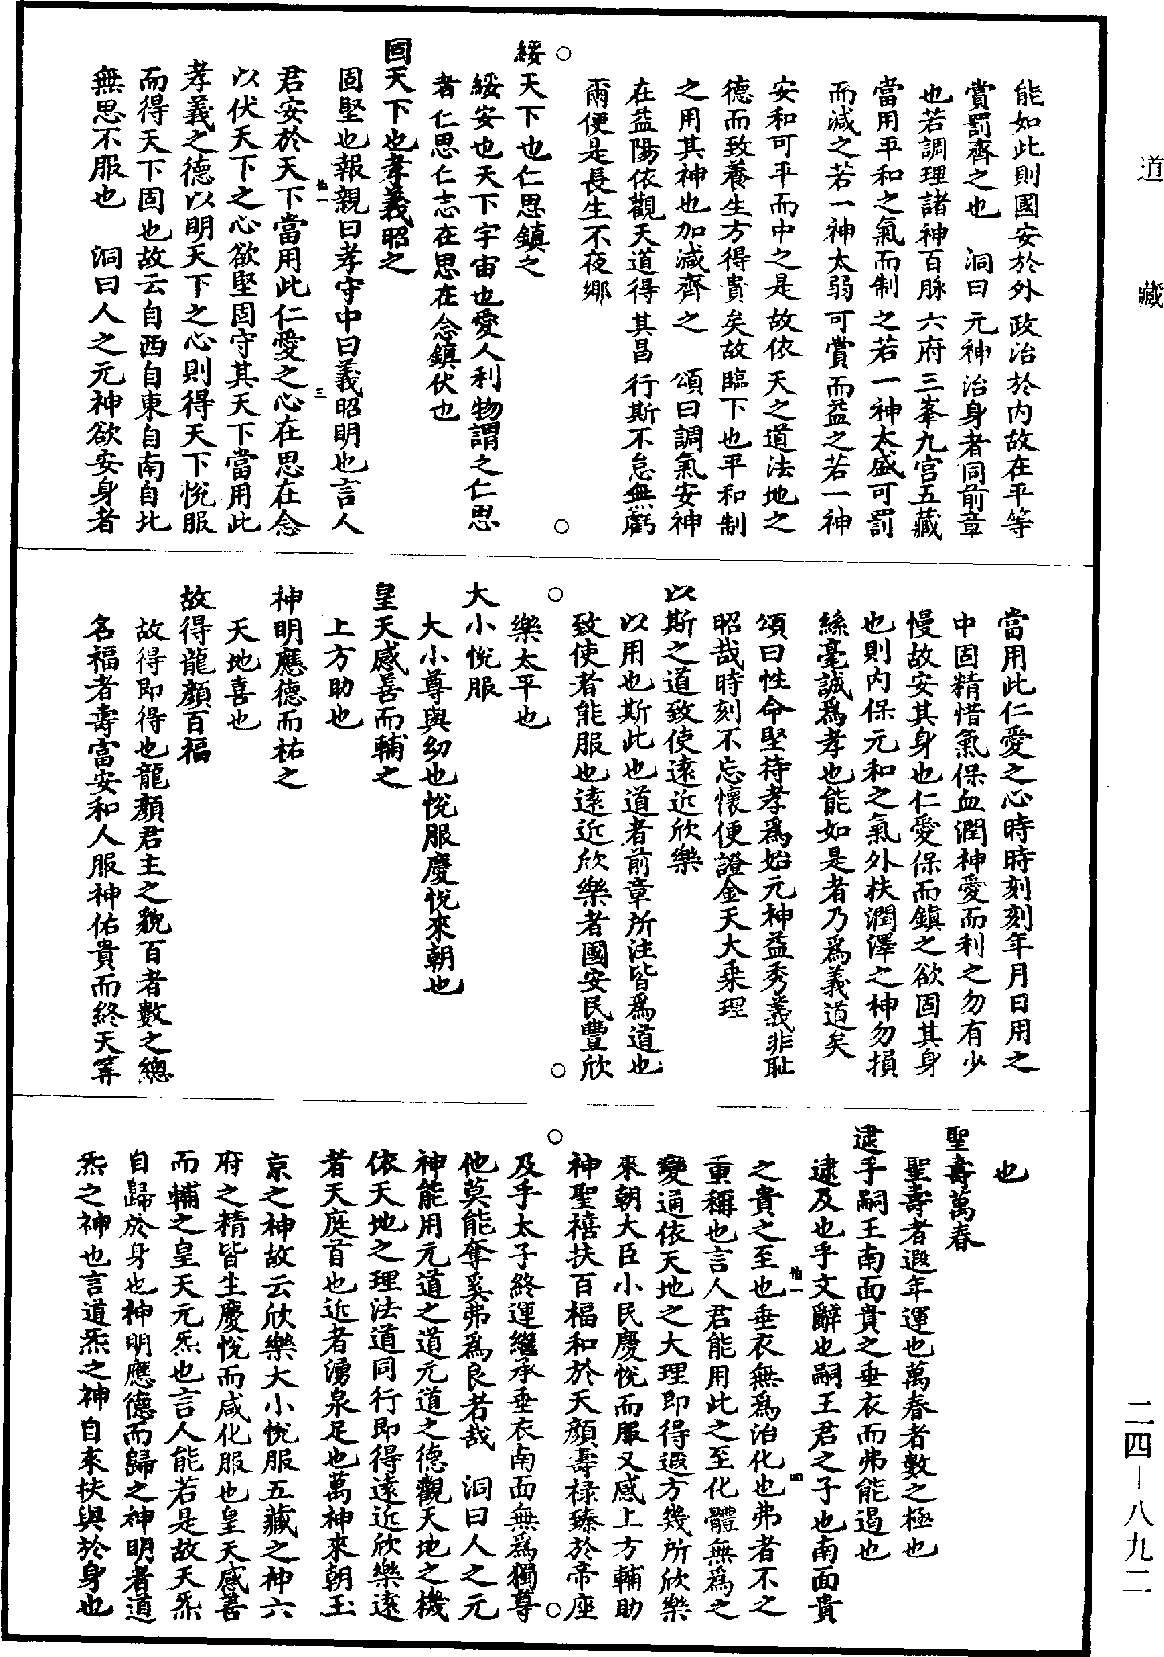 道藏
能如此則國安於外政治於内故在平等
賞罰齊之也　洞曰元神治身者同前章
也若調理諸神百脉六府三峯九宫五藏
當用平和之氣而制之若一神太盛可罰
而減之若一神太弱可賞而益之若一神
安和可平而中之是故依天之道法地之
德而致養生方得貴矣故臨下也平和制
之用其神也加減齊之　頌曰調氣安神
在益陽依觀天道得其昌行斯不怠無虧
爾便是長生不夜鄉
○　○
綏天下也仁思鎮之
綏安也天下宇宙也愛人利物謂之仁思
者仁思仁志在思在念鎮伏也
固天下也孝義昭之
固堅也報親曰孝守中曰義昭明也言人
三
君安於天下當用此仁愛之心在思在念
以伏天下之心欲堅固守其天下當用此
孝義之德以明天下之心則得天下悅服
而得天下固也故云自西自東自南自北
無思不服也　洞曰人之元神欲安身者
當用此仁愛之心時時刻刻年月日用之
中固精惜氣保血潤神愛而利之勿有少
慢故安其身也仁愛保而鎮之欲固其身
也則内保元和之氣外扶潤澤之神勿損
絲毫誠爲孝也能如是者乃爲義道矣
頌曰性命堅持孝爲始元神益秀義非耻
昭哉時刻不忘懷便證金天大乘理
以斯之道致使遠近欣樂
以用也斯此也道者前章所注皆爲道也
致使者能服也遠近欣樂者國安民豐欣
○　○
樂太平也
大小悅服
大小尊與幼也悅服慶悅來朝也
皇天感善而輔之
上方助也
神明應德而祐之
天地喜也
故得龍顔百福
故得即得也龍顔君主之貌百者數之總
名福者壽富安和人服神佑貴而終天筭
也
聖壽萬春
聖壽者遐年運也萬春者數之極也
逮乎嗣王南面貴之垂衣而弗能過也
逮及也乎文辭也嗣王君之子也南面貴
之貴之至也垂衣無爲治化也弗者不之
四
重稱也言人君能用此之至化體無爲之
變通依天地之大理即得遐方幾所欣樂
來朝大臣小民慶悅而服又感上方輔助
神聖禧扶百福和於天顔壽禄臻於帝座
○　○
及乎太子終運繼承垂衣南面無爲獨尊
他莫能奪奚弗爲良者哉　洞曰人之元
神能用元道之道元道之德觀天地之機
依天地之理法道同行即得遠近欣樂遠
者天庭首也近者湧泉足也萬神來朝玉
京之神故云欣樂大小悅服五藏之神六
府之精皆生慶悅而咸化服也皇天感善
而輔之皇天元炁也言人能若是故天炁
自歸於身也神明應德而歸之神明者道
炁之神也言道炁之神自來扶與於身也
二四－八九二